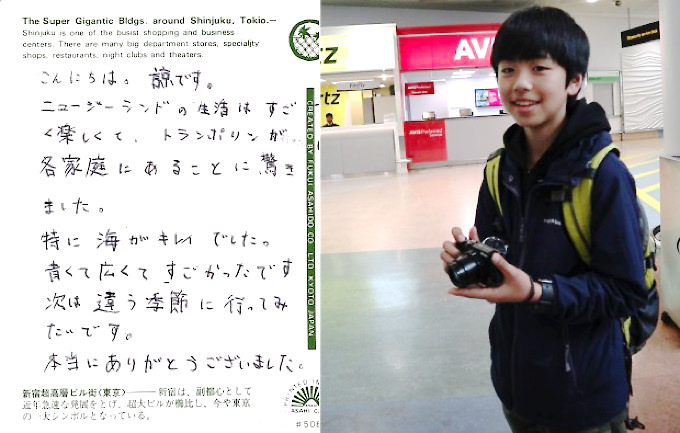 The Super Gigantic Bldgs. around Shinjuku, Tokio.—
Shinjuku is one of the busist shopping and business
centers. There are many big department stores, speciality
shops, restaurants, night clubs and theaters.
こんにちは。 諒です。
ニュージーランドの生活はすご
く楽しくて、トランポリンが
各家庭にあることに驚き
ました。
特に海がキレイでした。
青くて広くてすごかったです
次は違う季節に行ってみ
たいです。
本当にありがとうございました。
新宿超高層ビル街〈東京〉――新宿は、副都心として
近年急速な発展をとげ、超大ビルが櫛比し、今や東京
の一大シンボルとなっている。
CREATED BY FUKUI ASAHIDO CO. LTD KYOTO JAPAN
PRINTED IN
ASAHI C
#508
rtz
AVIS
AVIS Preferred
rtz
AVIS Preferred